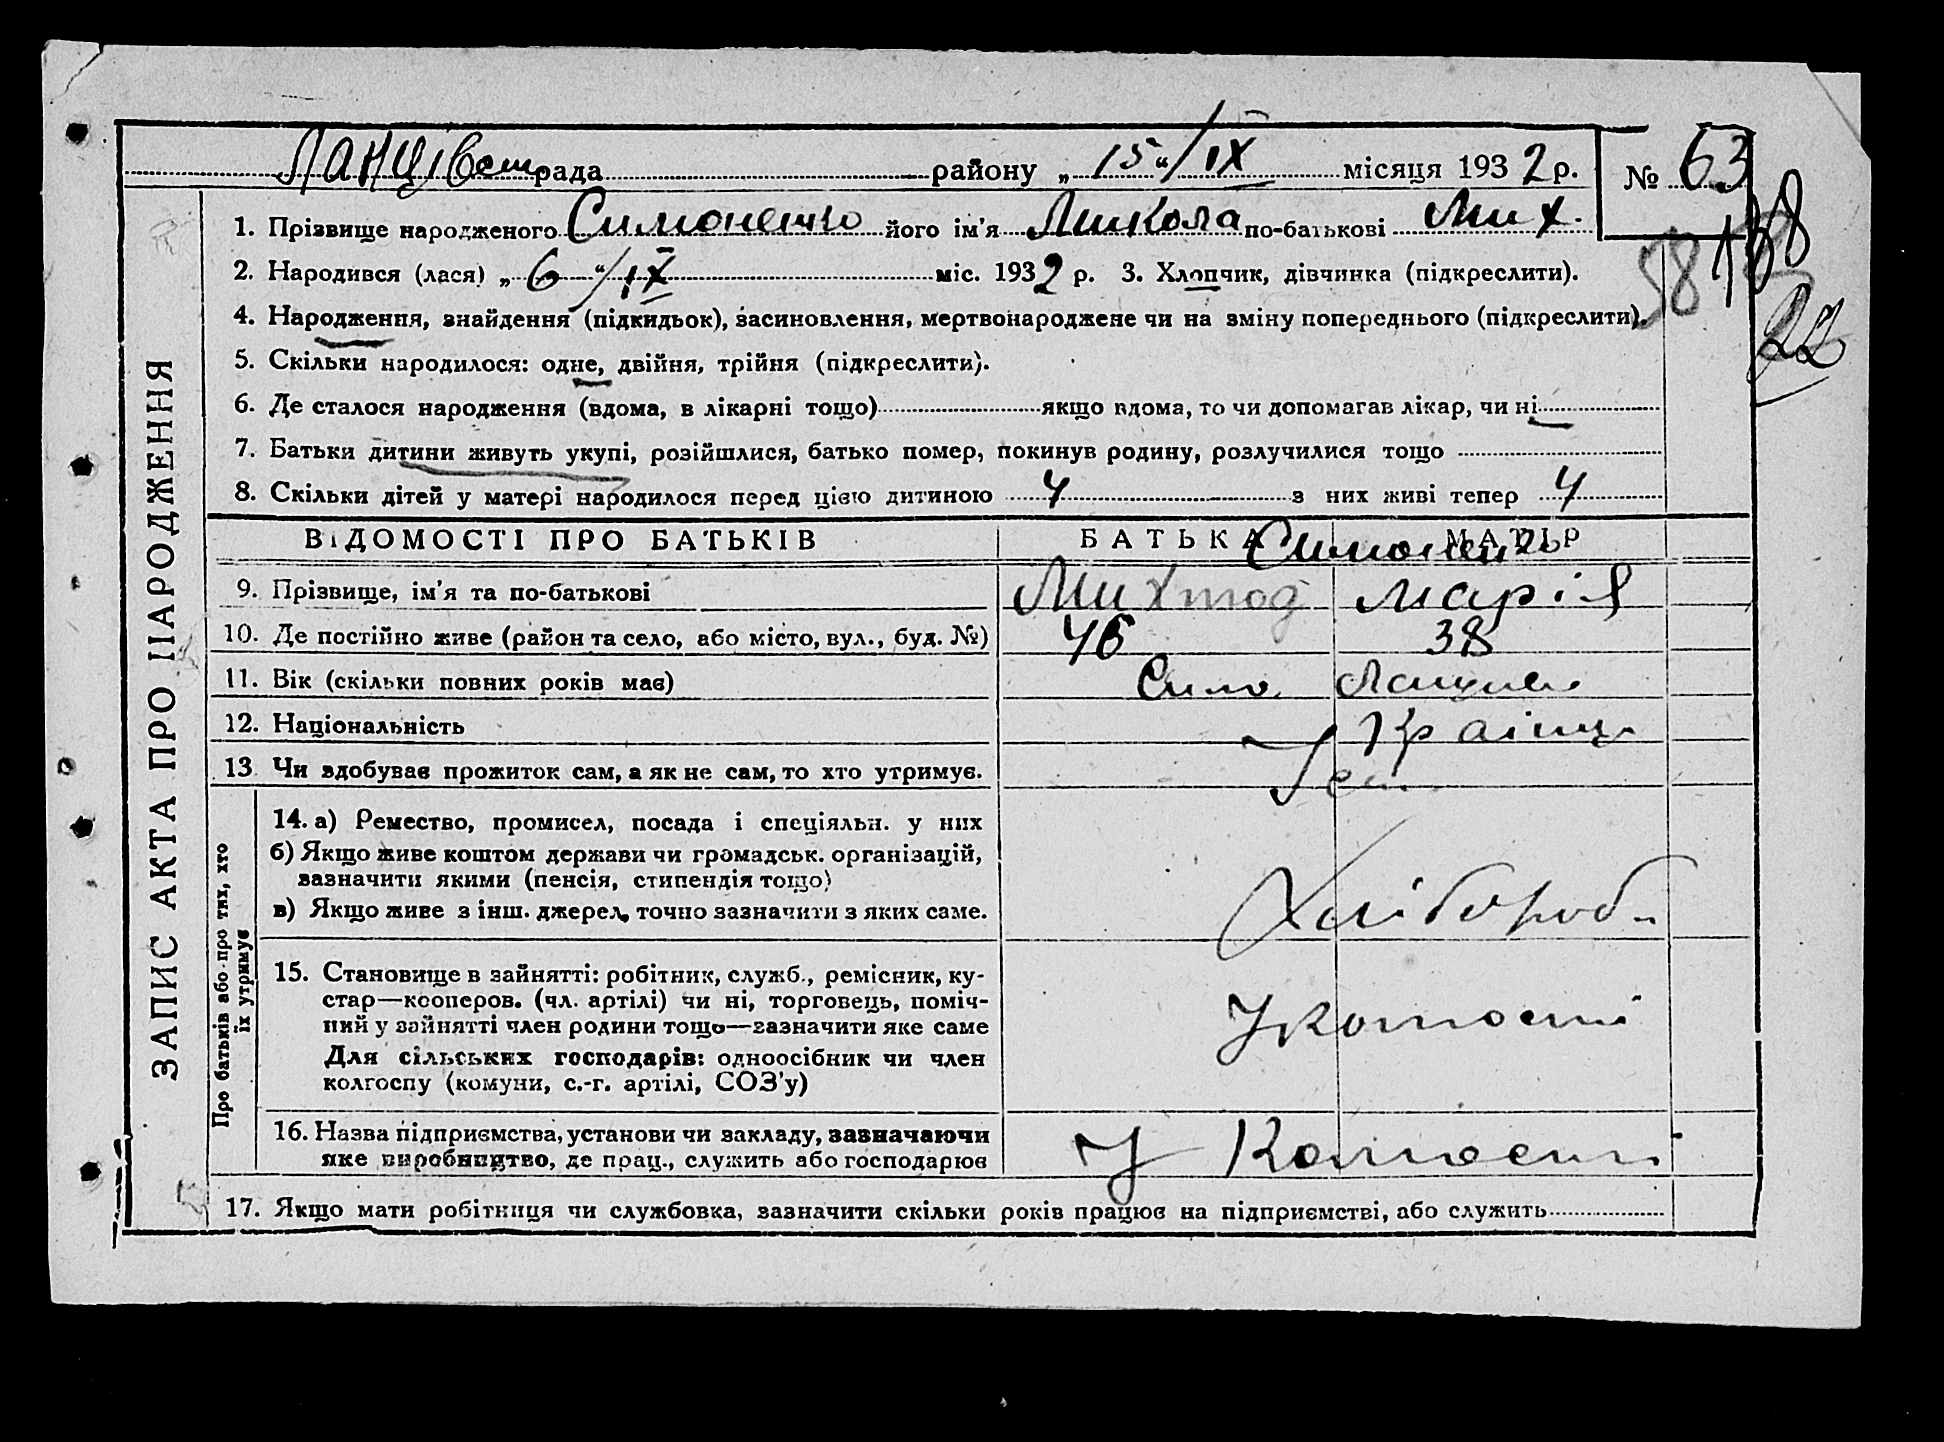 рада района „ 15 “ / IX місяця 1932 р. № 63
1. Прізвище народженого Симоненко його ім'я Микола по-батькові Мих.
2. Народився (лася) „ 6 “ / IX міс. 1932 р. 3. Хлопчик, дівчинка (підкреслити).
58 22
4. Народження, знайдення (підкидьок), засиновлення, мертвонароджене чи на зміну попереднього (підкреслити).
5. Скільки народилося: одне, двійня, трійня (підкреслити).
6. Де сталося народження (вдома, в лікарні тощо) якщо вдома, то чи допомагав лікар, чи ні
7. Батьки дитини живуть укупі, розійшлися, батько помер, покинув родину, розлучилися тощо
8. Скільки дітей у матері народилося перед цією дитиною 4 з них живі тепер 4
ЗАПИС АКТА ПРО НАРОДЖЕННЯ
ВІДОМОСТІ ПРО БАТЬКІВ БАТЬКА МАТІР
Симоненко
9. Прізвище, ім'я та по-батькові Марія
10. Де постійно живе (район та село, або місто, вул., буд. №) 46 38
11. Вік (скільки повних років має)
12. Національність
13. Чи здобуває прожиток сам, а як не сам, то хто утримує.
Про батьків або про тих, хто їх утримує
14. а) Ремество, промисел, посада і спеціяльн. у них
б) Якщо живе коштом держави чи громадськ. організацій,
зазначити якими (пенсія, стипендія тощо)
в) Якщо живе з інш. джерел, точно зазначити з яких саме.
15. Становище в зайнятті: робітник, служб., ремісник, ку-
стар—кооперов. (чл. артілі) чи ні, торговець, поміч-
ний у зайнятті член родини тощо—зазначити яке саме
Для сільських господарів: одноосібник чи член
колгоспу (комуни, с.-г. артілі, СОЗ'у)
16. Назва підприємства, установи чи закладу, зазначаючи
яке виробництво, де прац., служить або господарює
17. Якщо мати робітниця чи службовка, зазначити скільки років працює на підприємстві, або служить